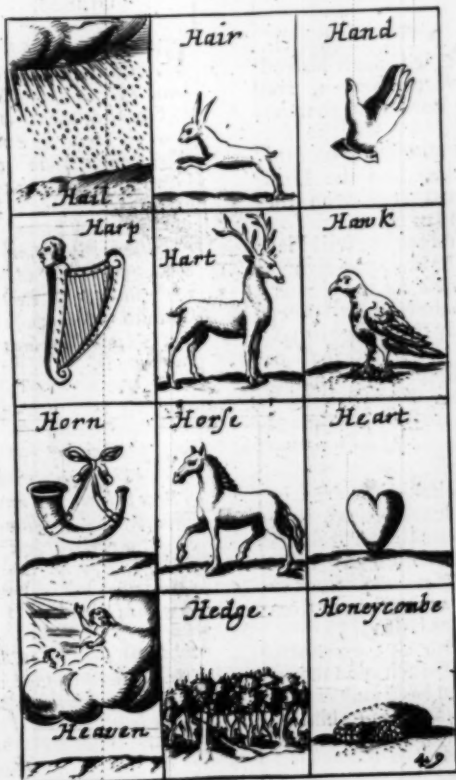 Hail
Hair
Hand
Harp
Hart
Hawk
Horn
Horſe
Heart
Heaven
Hedge
Honeycombe
49